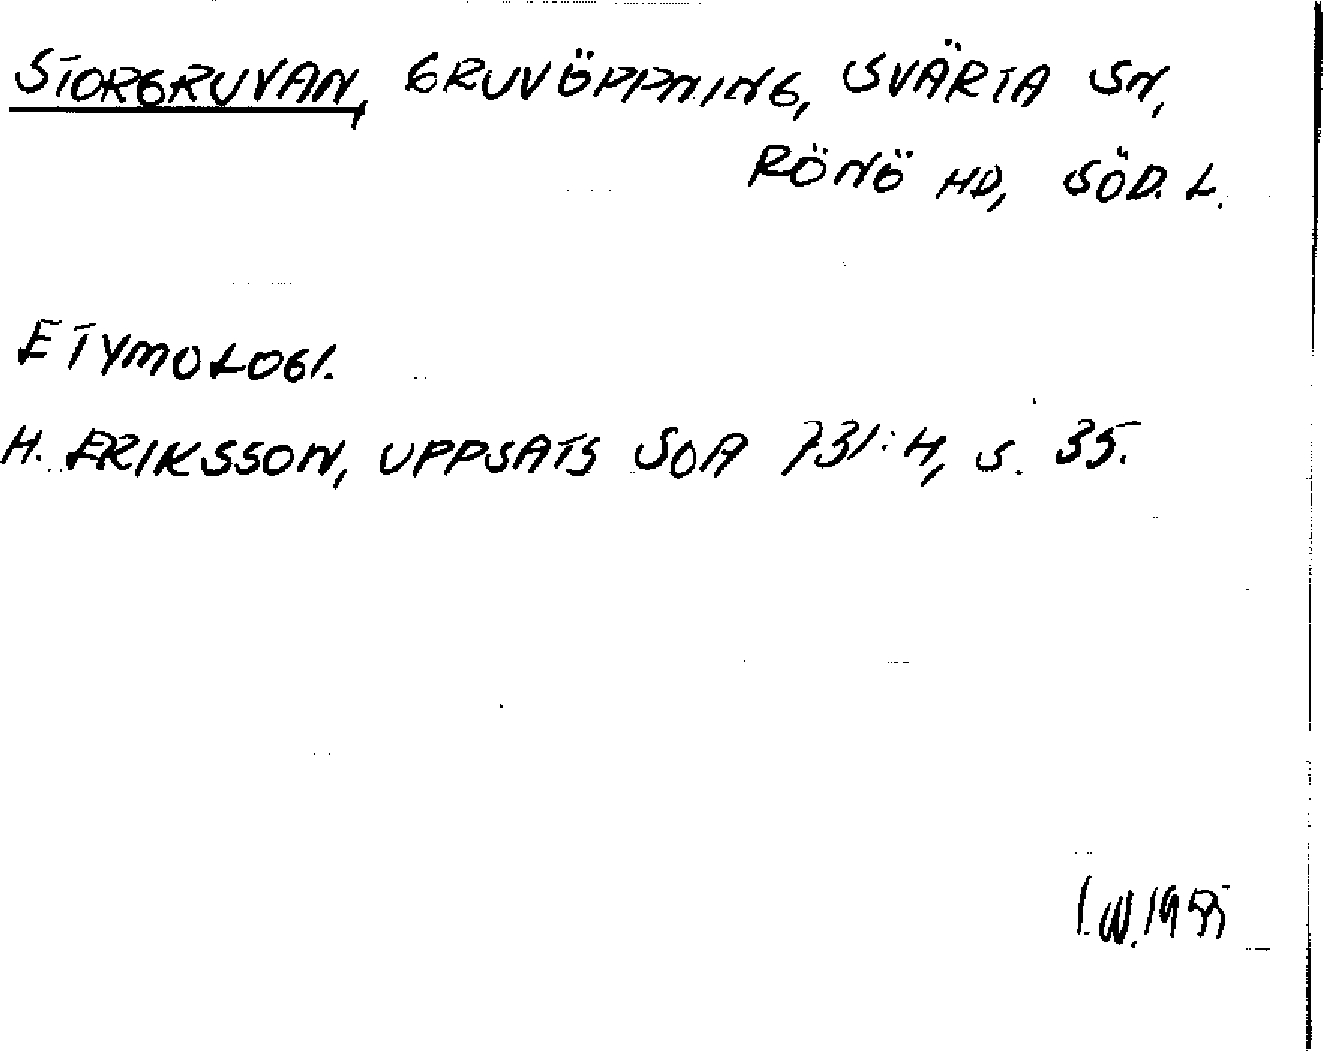 STORGRUVAN, GRUVÖPPNING, SVÄRTA SN,
RÖNÖ HD, SÖD. L.
ETYMOLOGI.
H. ERIKSSON, UPPSATS SOA 731:4, S. 35.
I.W.